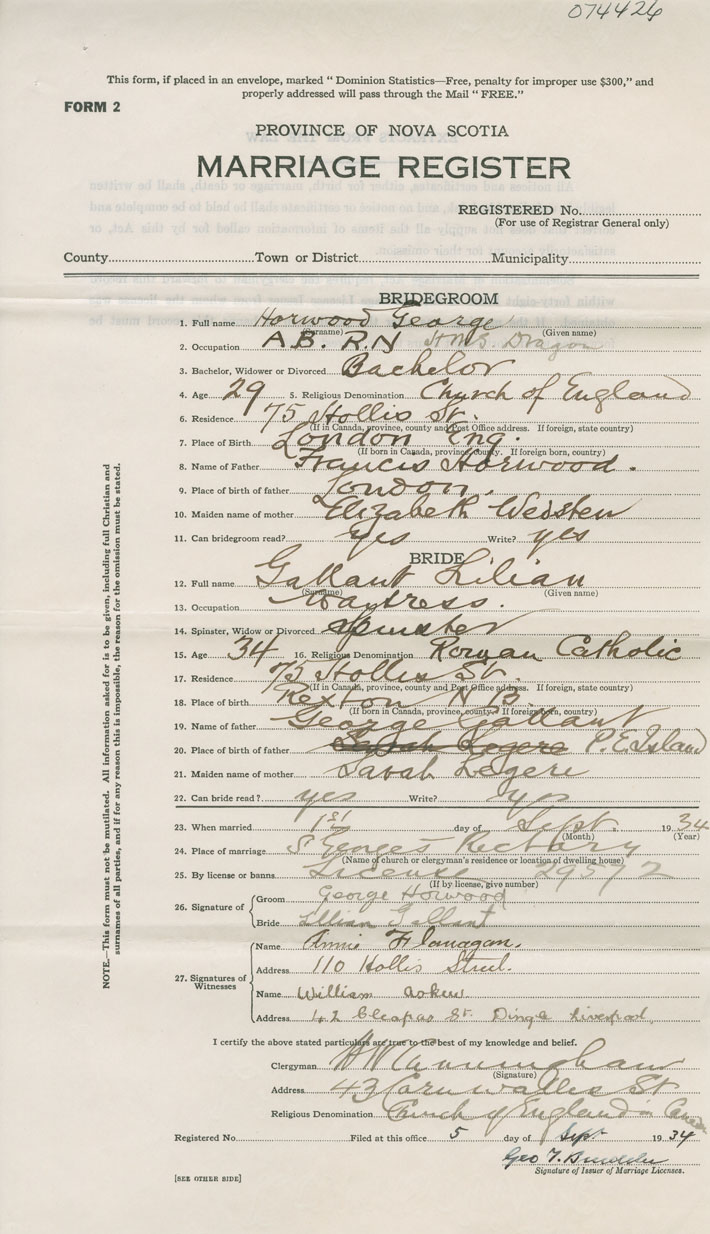 074424
This form, if placed in an envelope, marked “ Dominion Statistics—Free, penalty for improper use $300,” and
properly addressed will pass through the Mail “ FREE.”
FORM 2
PROVINCE OF NOVA SCOTIA
MARRIAGE REGISTER
REGISTERED No.
(For use of Registrar General only)
County Town or District Municipality
BRIDEGROOM
1. Full name Horwood George
(Surname) (Given name)
2. Occupation A.B. R.N H.M.S. Dragon
3. Bachelor, Widower or Divorced Bachelor
4. Age 29 5. Religious Denomination Church of England
6. Residence 75 Hollis St.
(If in Canada, province, county and Post Office address. If foreign, state country)
7. Place of Birth London Eng.
(If born in Canada, province, county. If foreign born, country)
8. Name of Father Francis Horwood.
9. Place of birth of father London.
10. Maiden name of mother Elizabeth
11. Can bridegroom read? yes Write? yes
BRIDE
12. Full name Gallant Lilian
(Surname) (Given name)
13. Occupation Waytress.
14. Spinster, Widow or Divorced Spinster
15. Age 34 16. Religious Denomination Roman Catholic
17. Residence 75 Hollis St.
(If in Canada, province, county and Post Office address. If foreign, state country)
18. Place of birth Rexton N.B.
(If born in Canada, province, county. If foreign born, country)
19. Name of father George Gallant
20. Place of birth of father Sarah Legere P.E. Island
21. Maiden name of mother Sarah Legere
22. Can bride read? yes Write? yes
23. When married 1st day of Sept. 1934
(Month) (Year)
24. Place of marriage St George's Rectory
(Name of church or clergyman's residence or location of dwelling house)
25. By license or banns License 29572
(If by license, give number)
26. Signature of
Groom George Horwood
Bride Lillian Gallant
27. Signatures of Witnesses
Name Annie Flanagan.
Address 110 Hollis Street.
Name William
Address 42 St. Dingle Liverpool
I certify the above stated particulars are true to the best of my knowledge and belief.
Clergyman H W Cunningham
(Signature)
Address 43 Cornwallis St
Religious Denomination Church of England in Canada
Registered No. Filed at this office 5 day of Sept 1934
Geo T.
Signature of Issuer of Marriage Licenses.
[SEE OTHER SIDE]
NOTE.—This form must not be mutilated. All information asked for is to be given, including full Christian and
surnames of all parties, and if for any reason this is impossible, the reason for the omission must be stated.